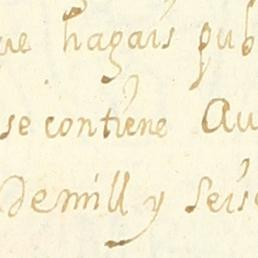 ue hagais pub
se contiene Au
Demill y seis